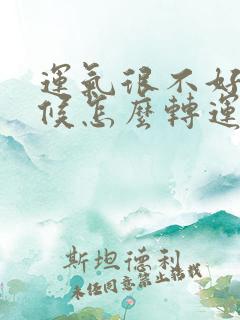 運氣很不好
候怎麼轉運
斯坦德利
未經同意禁止搭載